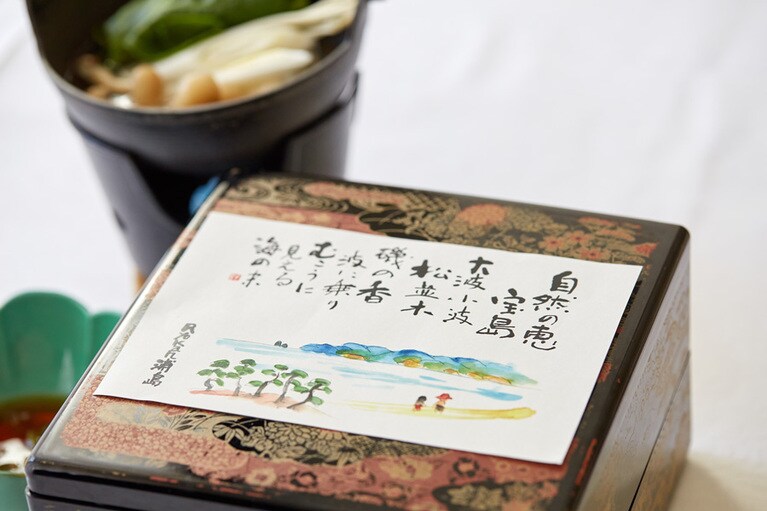 自然の恵
宝島
大波小波
松並木
磯の香
波に乗り
むこうに
見える
海の幸
民宿ビジネス浦島